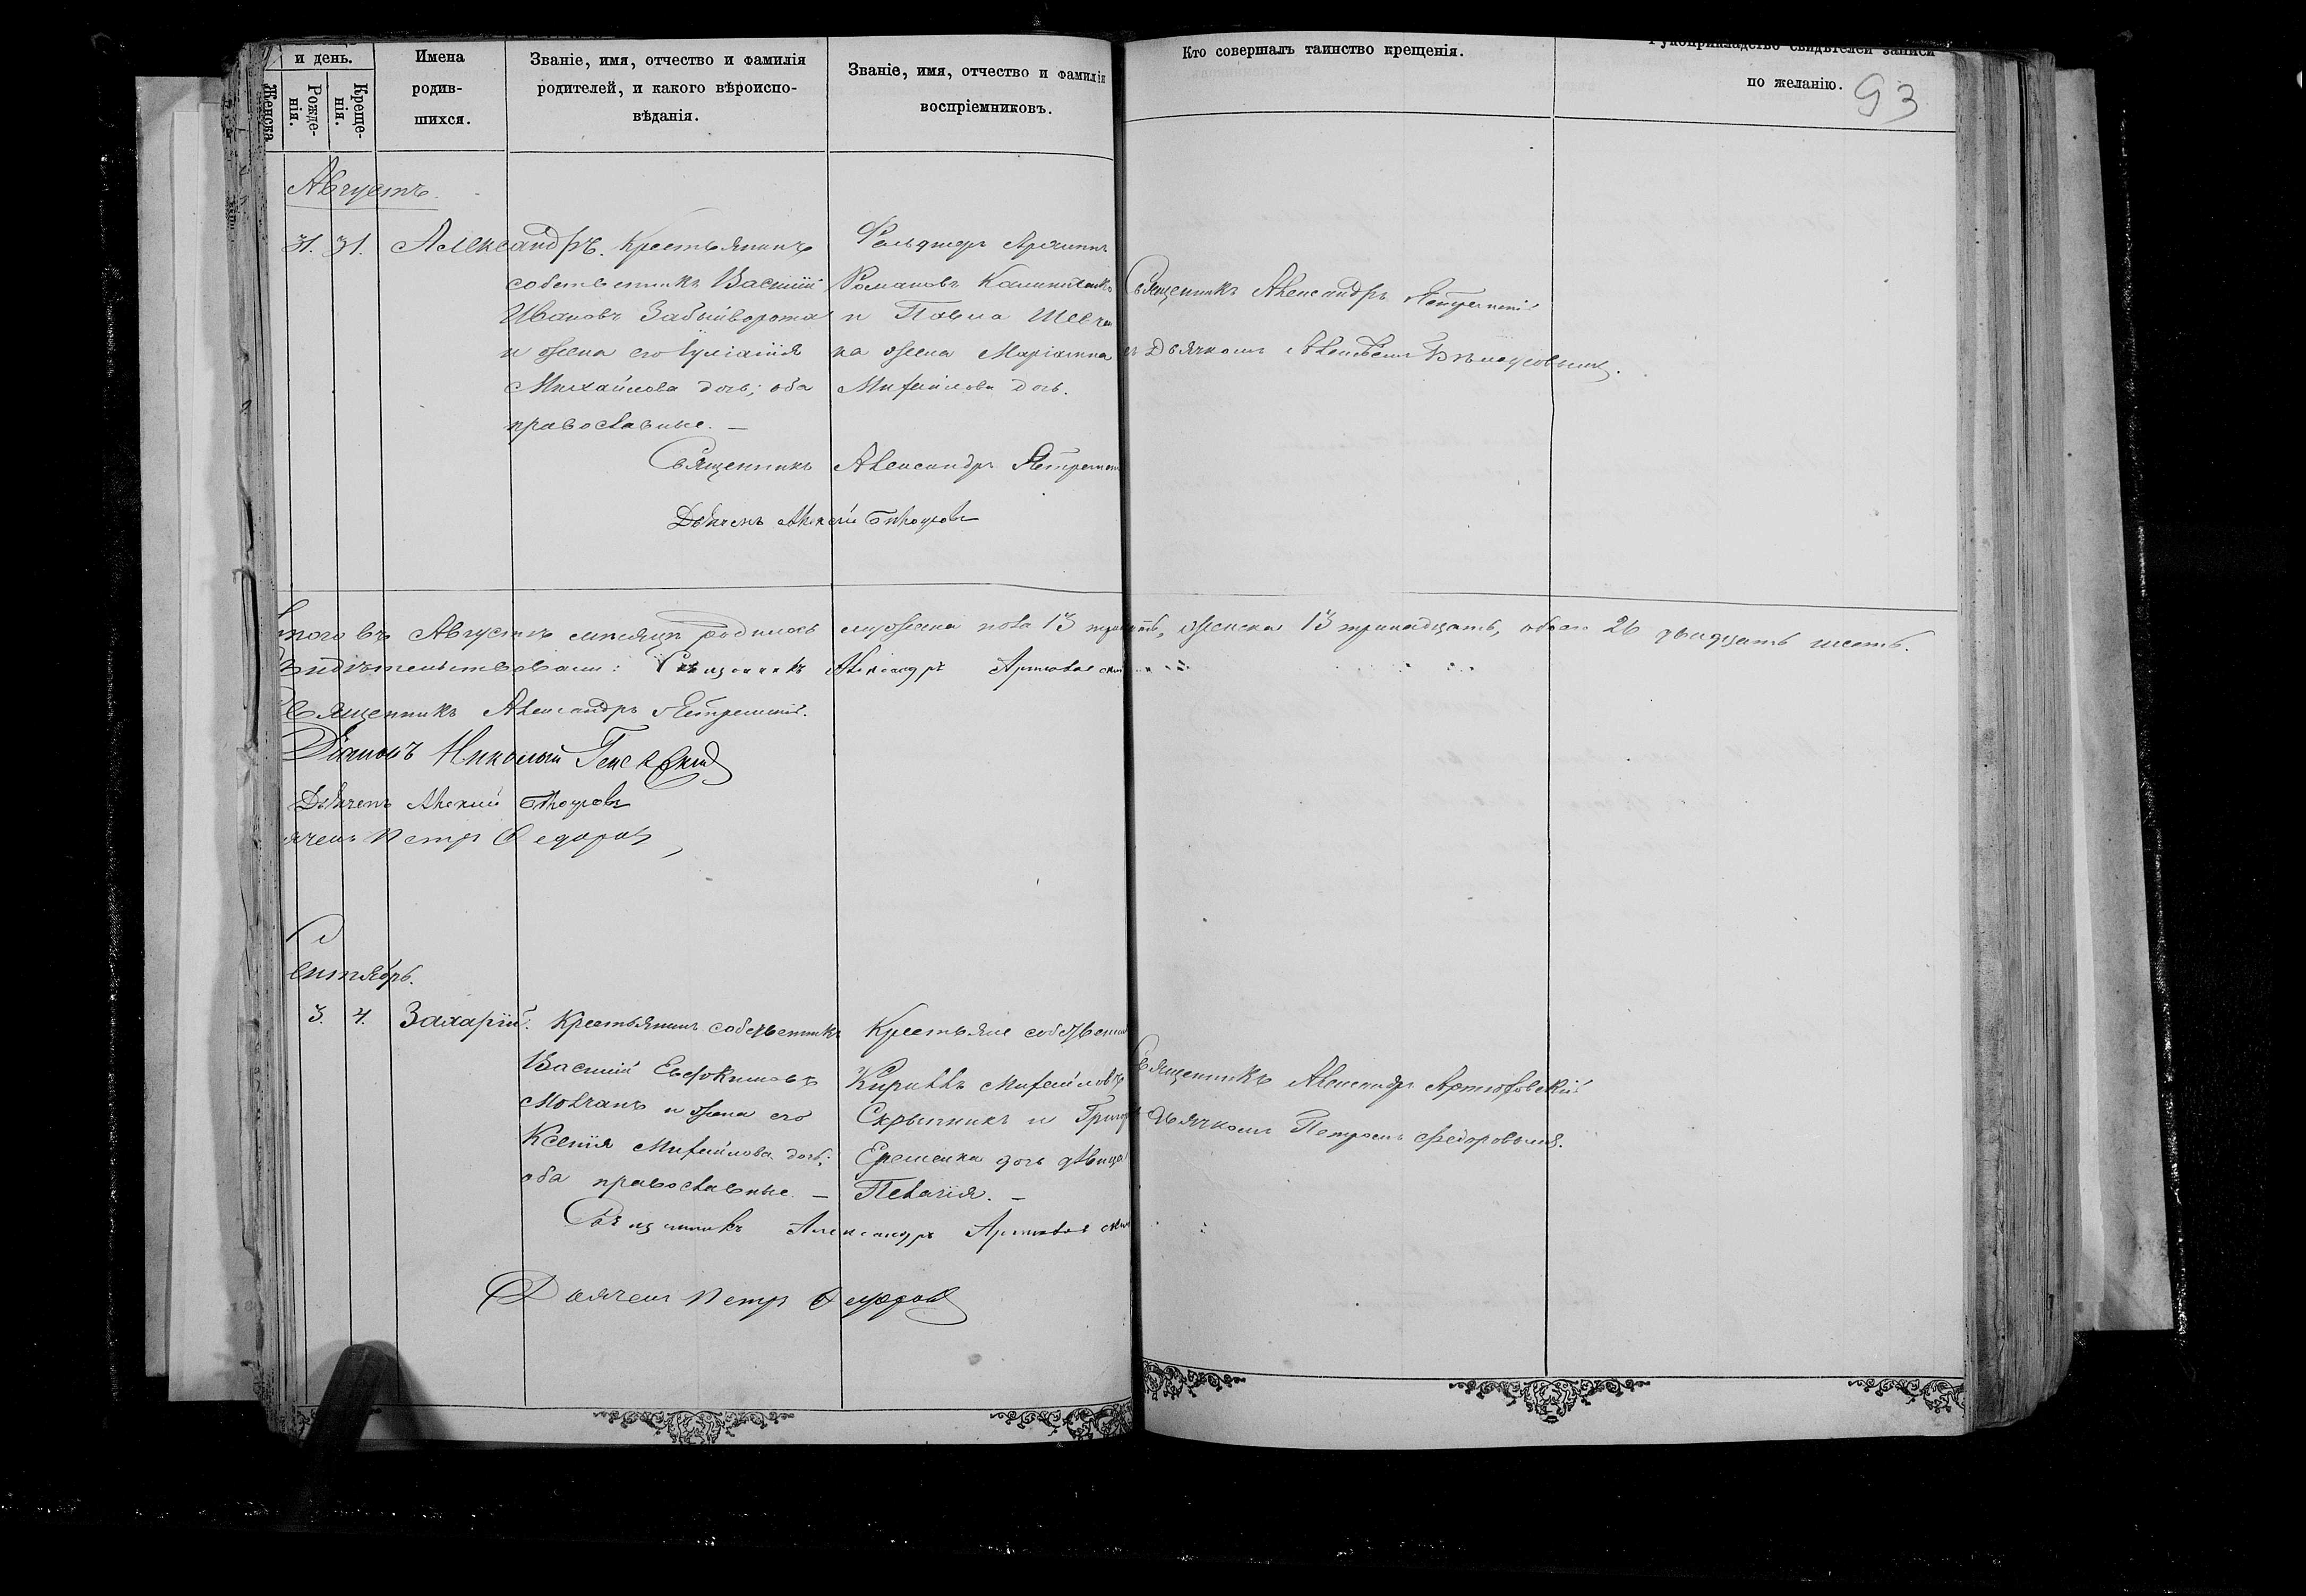 и день.
Женска
Рожде-
нія.
Креще-
нія.
Имена
родив-
шихся.
Званіе, имя, отчество и фамилія
родителей, и какого вѣроиспо-
вѣданія.
Званіе, имя, отчество и фамилія
воспріемниковъ.
Кто совершалъ таинство крещенія.
Рукоприкладство свидѣтелей записи
по желанію.
93
Августъ.
31. 31. Александръ.
Крестьянинъ
собственникъ Василій
Ивановъ Забыйворота
и жена его Іуліанія
Михайлова дочь; оба
православные. —
Фельдшеръ
Романовъ
и Павла Шевчен
ка жена Маріанна
Михайлова дочь.
Священникъ Александръ
и Дьячкомъ Алексѣемъ Бѣлоусовымъ.
Священникъ Александръ
Дьячекъ Алексѣй Бѣлоусовъ
того въ Августѣ мѣсяцѣ родилось мужеска пола 13, женска 13 тринадцать, обоего 26 двадцать шесть.
видѣтельствовали: Священникъ Александръ Артюховскій
Священникъ Александръ
Діаконъ Николай
Дьячекъ Алексѣй Бѣлоусовъ
ячекъ Петръ Федоровъ
Сентябрь.
3. 4. Захарій.
Крестьянинъ собственникъ
Василій Евфокимовъ
Молчанъ и жена его
Ксенія Михайлова дочь;
оба православные. —
Крестьяне собственни
Кириллъ Михайловъ
Скрынникъ и Григор
Еременка дочь дѣвица
Пелагія. —
Священникъ Александръ Артюховскій
Дьячкомъ Петромъ Федоровымъ.
Священникъ Александръ Артюховскій
Дьячекъ Петръ Федоровъ